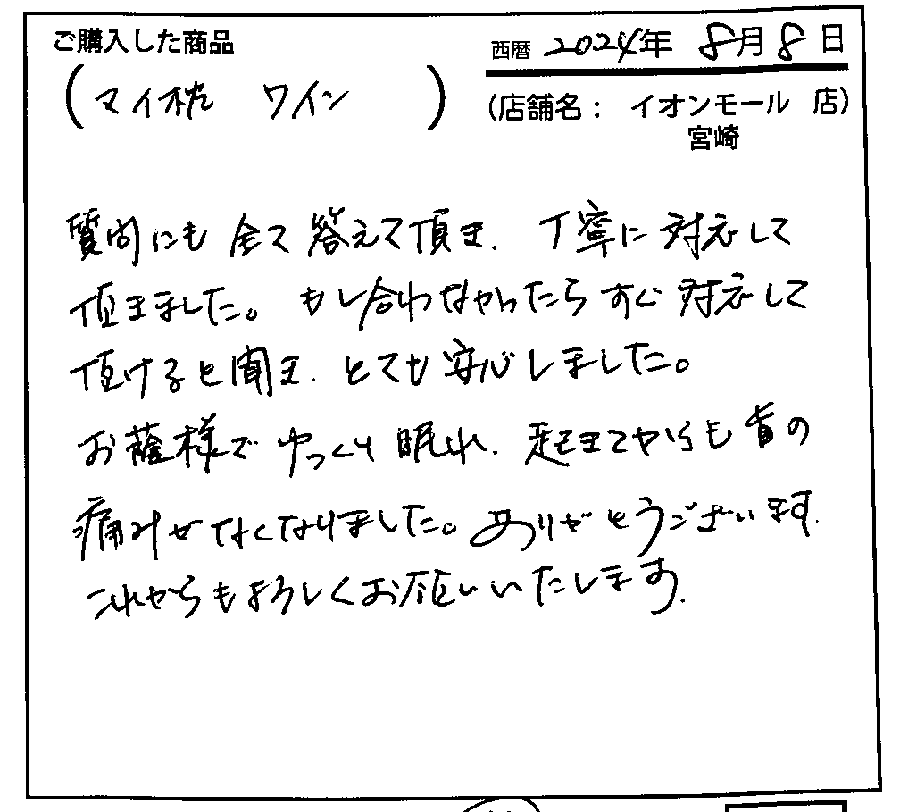 ご購入した商品
西暦 2024年 8月 8日
(マイ枕 ワイン )
(店舗名: イオンモール 店)
宮崎
質問にも全て答えて頂き、丁寧に対応して
頂きました。もし合わなかったらすぐ対応して
頂けると聞き、とても安心しました。
お蔭様でゆっくり眠れ、起きてからも首の
痛みがなくなりました。ありがとうございます。
これからもよろしくお願いいたします。